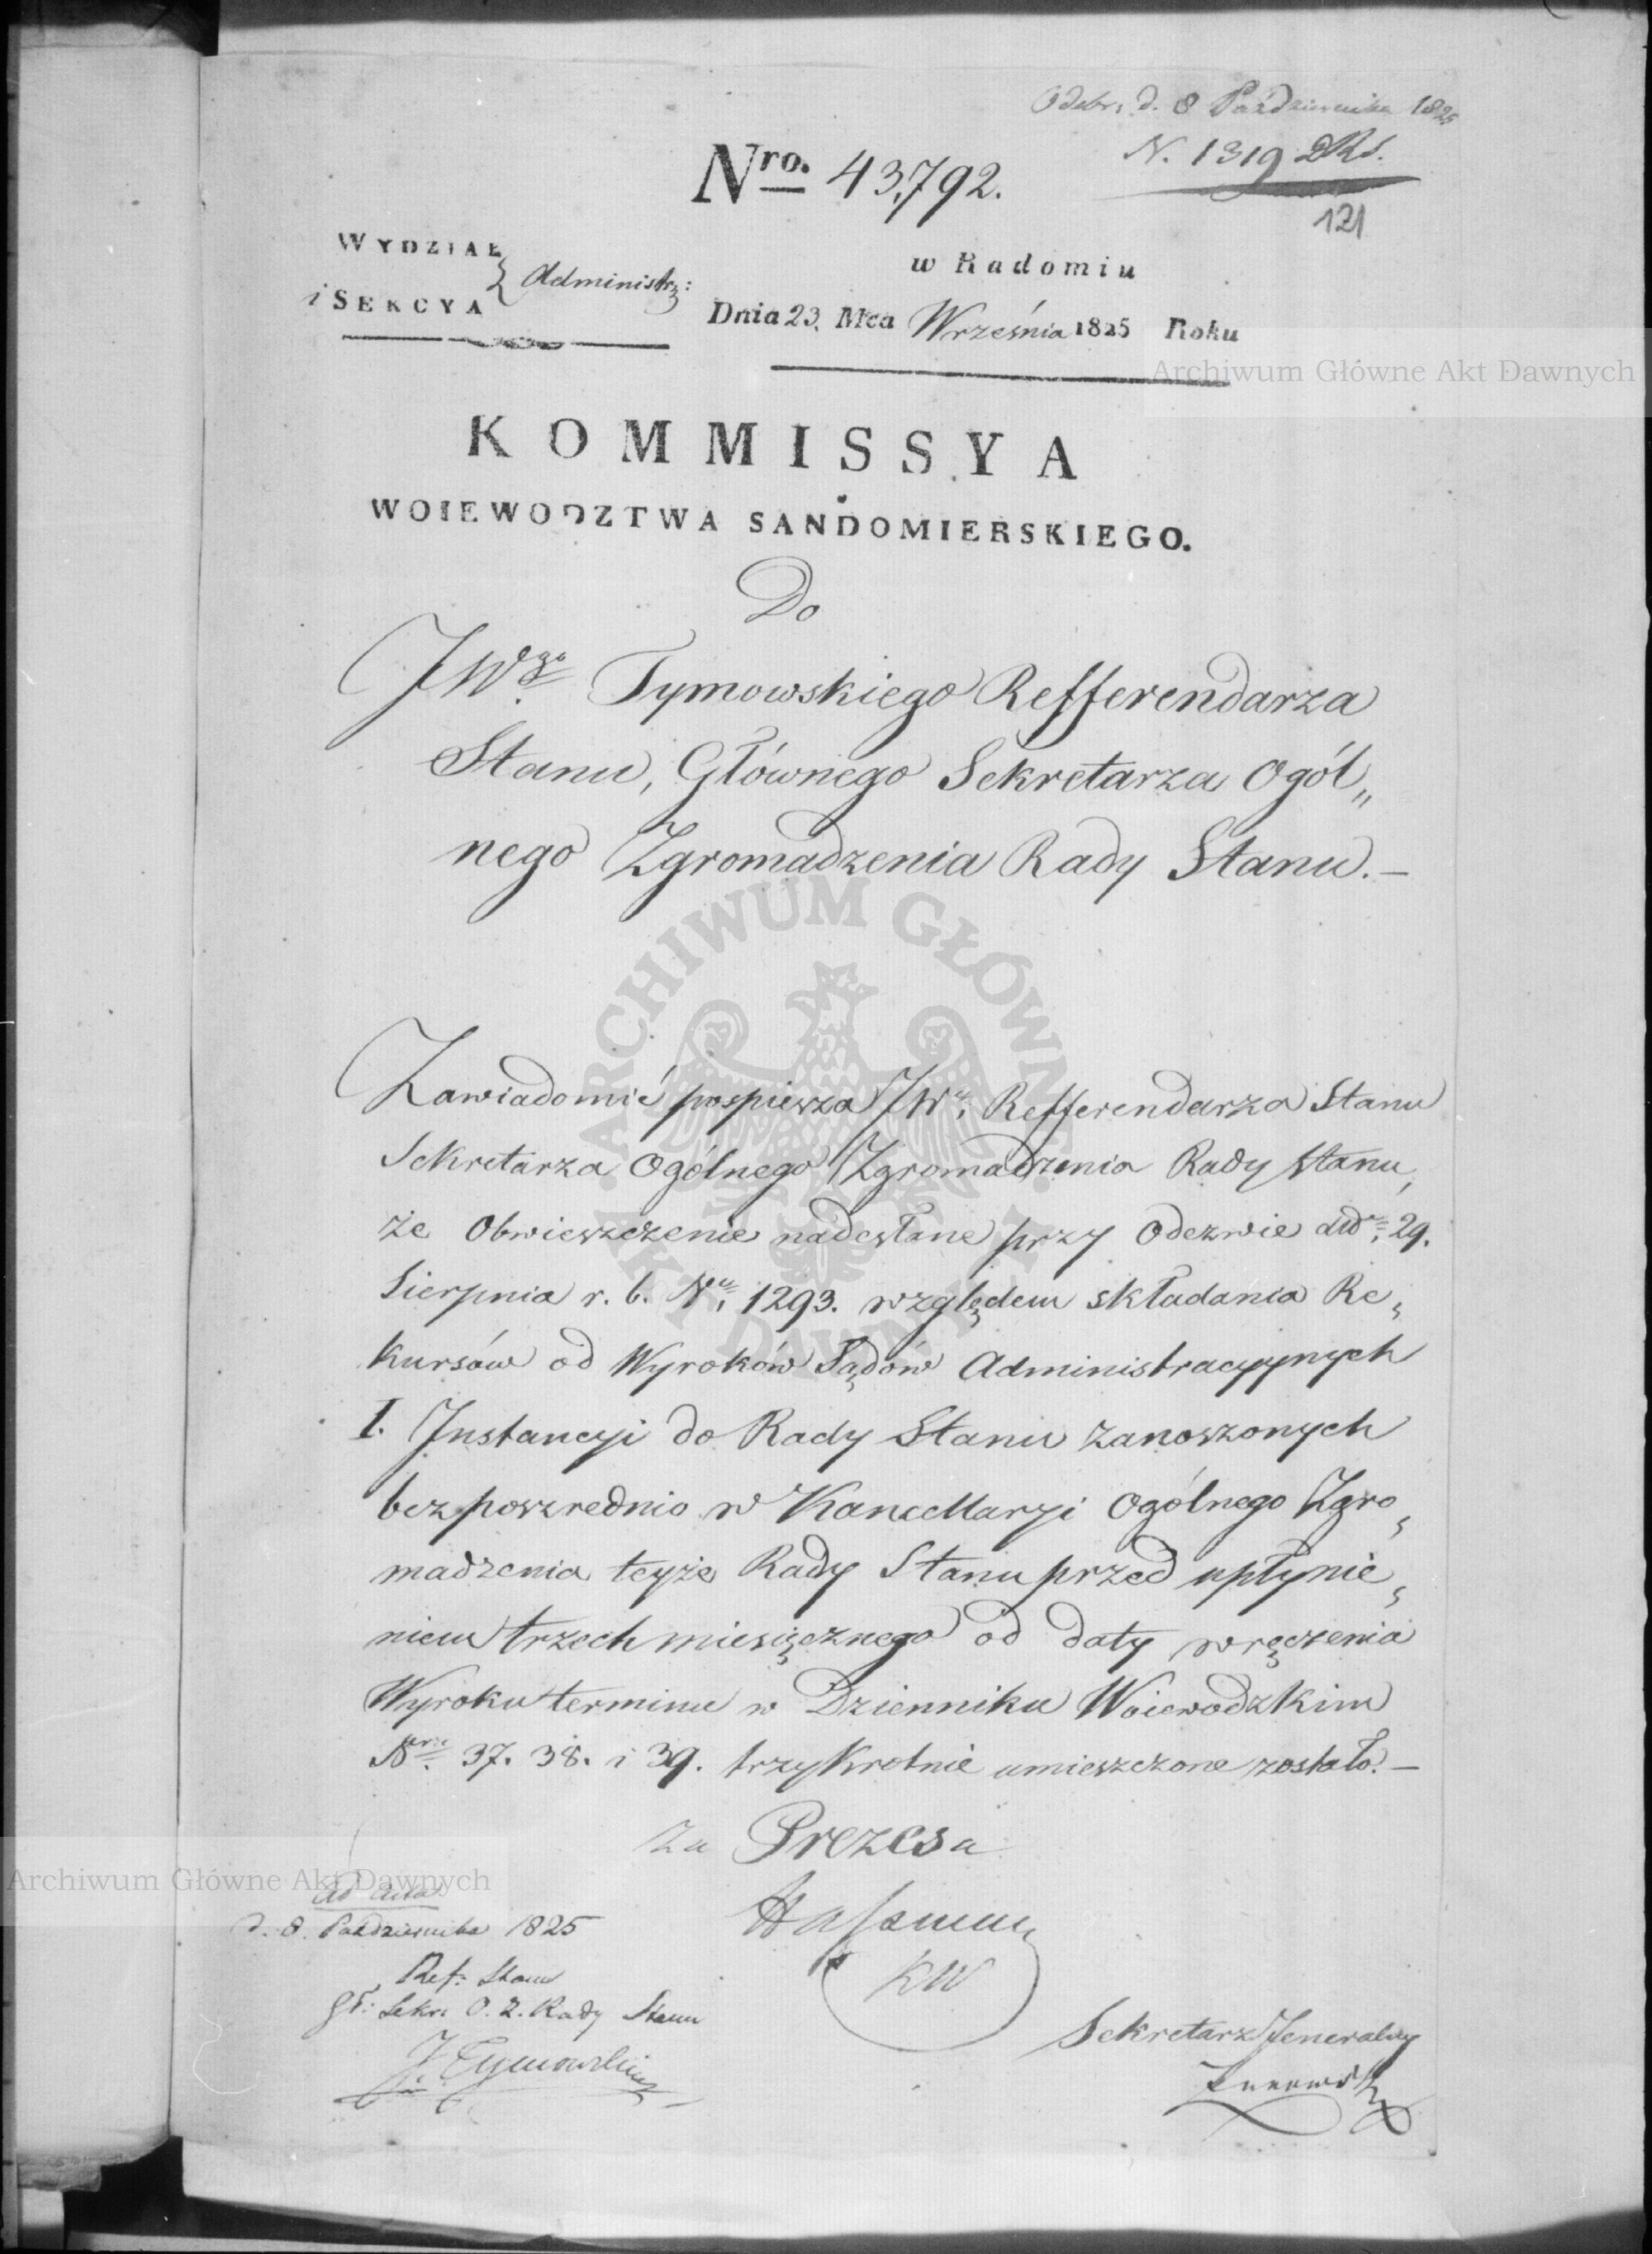 Odebr: d. 8 Października 1825
N. 1319 DRS.
121
Nro. 43,792.
WYDZIAŁ
i SEKCYA
Administr:
w Radomiu
Dnia 23. Mca Września 1825 Roku
Archiwum Główne Akt Dawnych
KOMMISSYA
WOIEWODZTWA SANDOMIERSKIEGO.
Do
JWgo Tymowskiego Refferendarza
Stanu, Głównego Sekretarza Ogól„
nego Zgromadzenia Rady Stanu.—
ARCHIWUM GŁÓWNE AKT DAWNYCH
Zawiadomić pospiesza JWo. Refferendarza Stanu
Sekretarza Ogólnego Zgromadzenia Rady Stanu,
że Obwieszczenie nadesłane przy Odezwie ddo. 29.
Sierpnia r. b. Nu. 1293. względem składania Re„
kursów od Wyroków Sądów Administracyjnych
I. Instancyi do Rady Stanu zanoszonych
bezpośrzednio w Kancellaryi Ogólnego Zgro„
madzenia teyże Rady Stanu przed upłynie„
niem trzechmiesięcznego od daty wręczenia
Wyroku terminu w Dzienniku Woiewodzkim
Nru. 37. 38. i 39. trzykrotnie umieszczone zostało.—
Za Prezesa
KW
Archiwum Główne Akt Dawnych
ad acta
d. 8. Października 1825
Ref: Stanu
Gł: Sekr: O. Z. Rady Stanu
J. Tymowski
Sekretarz Jeneralny